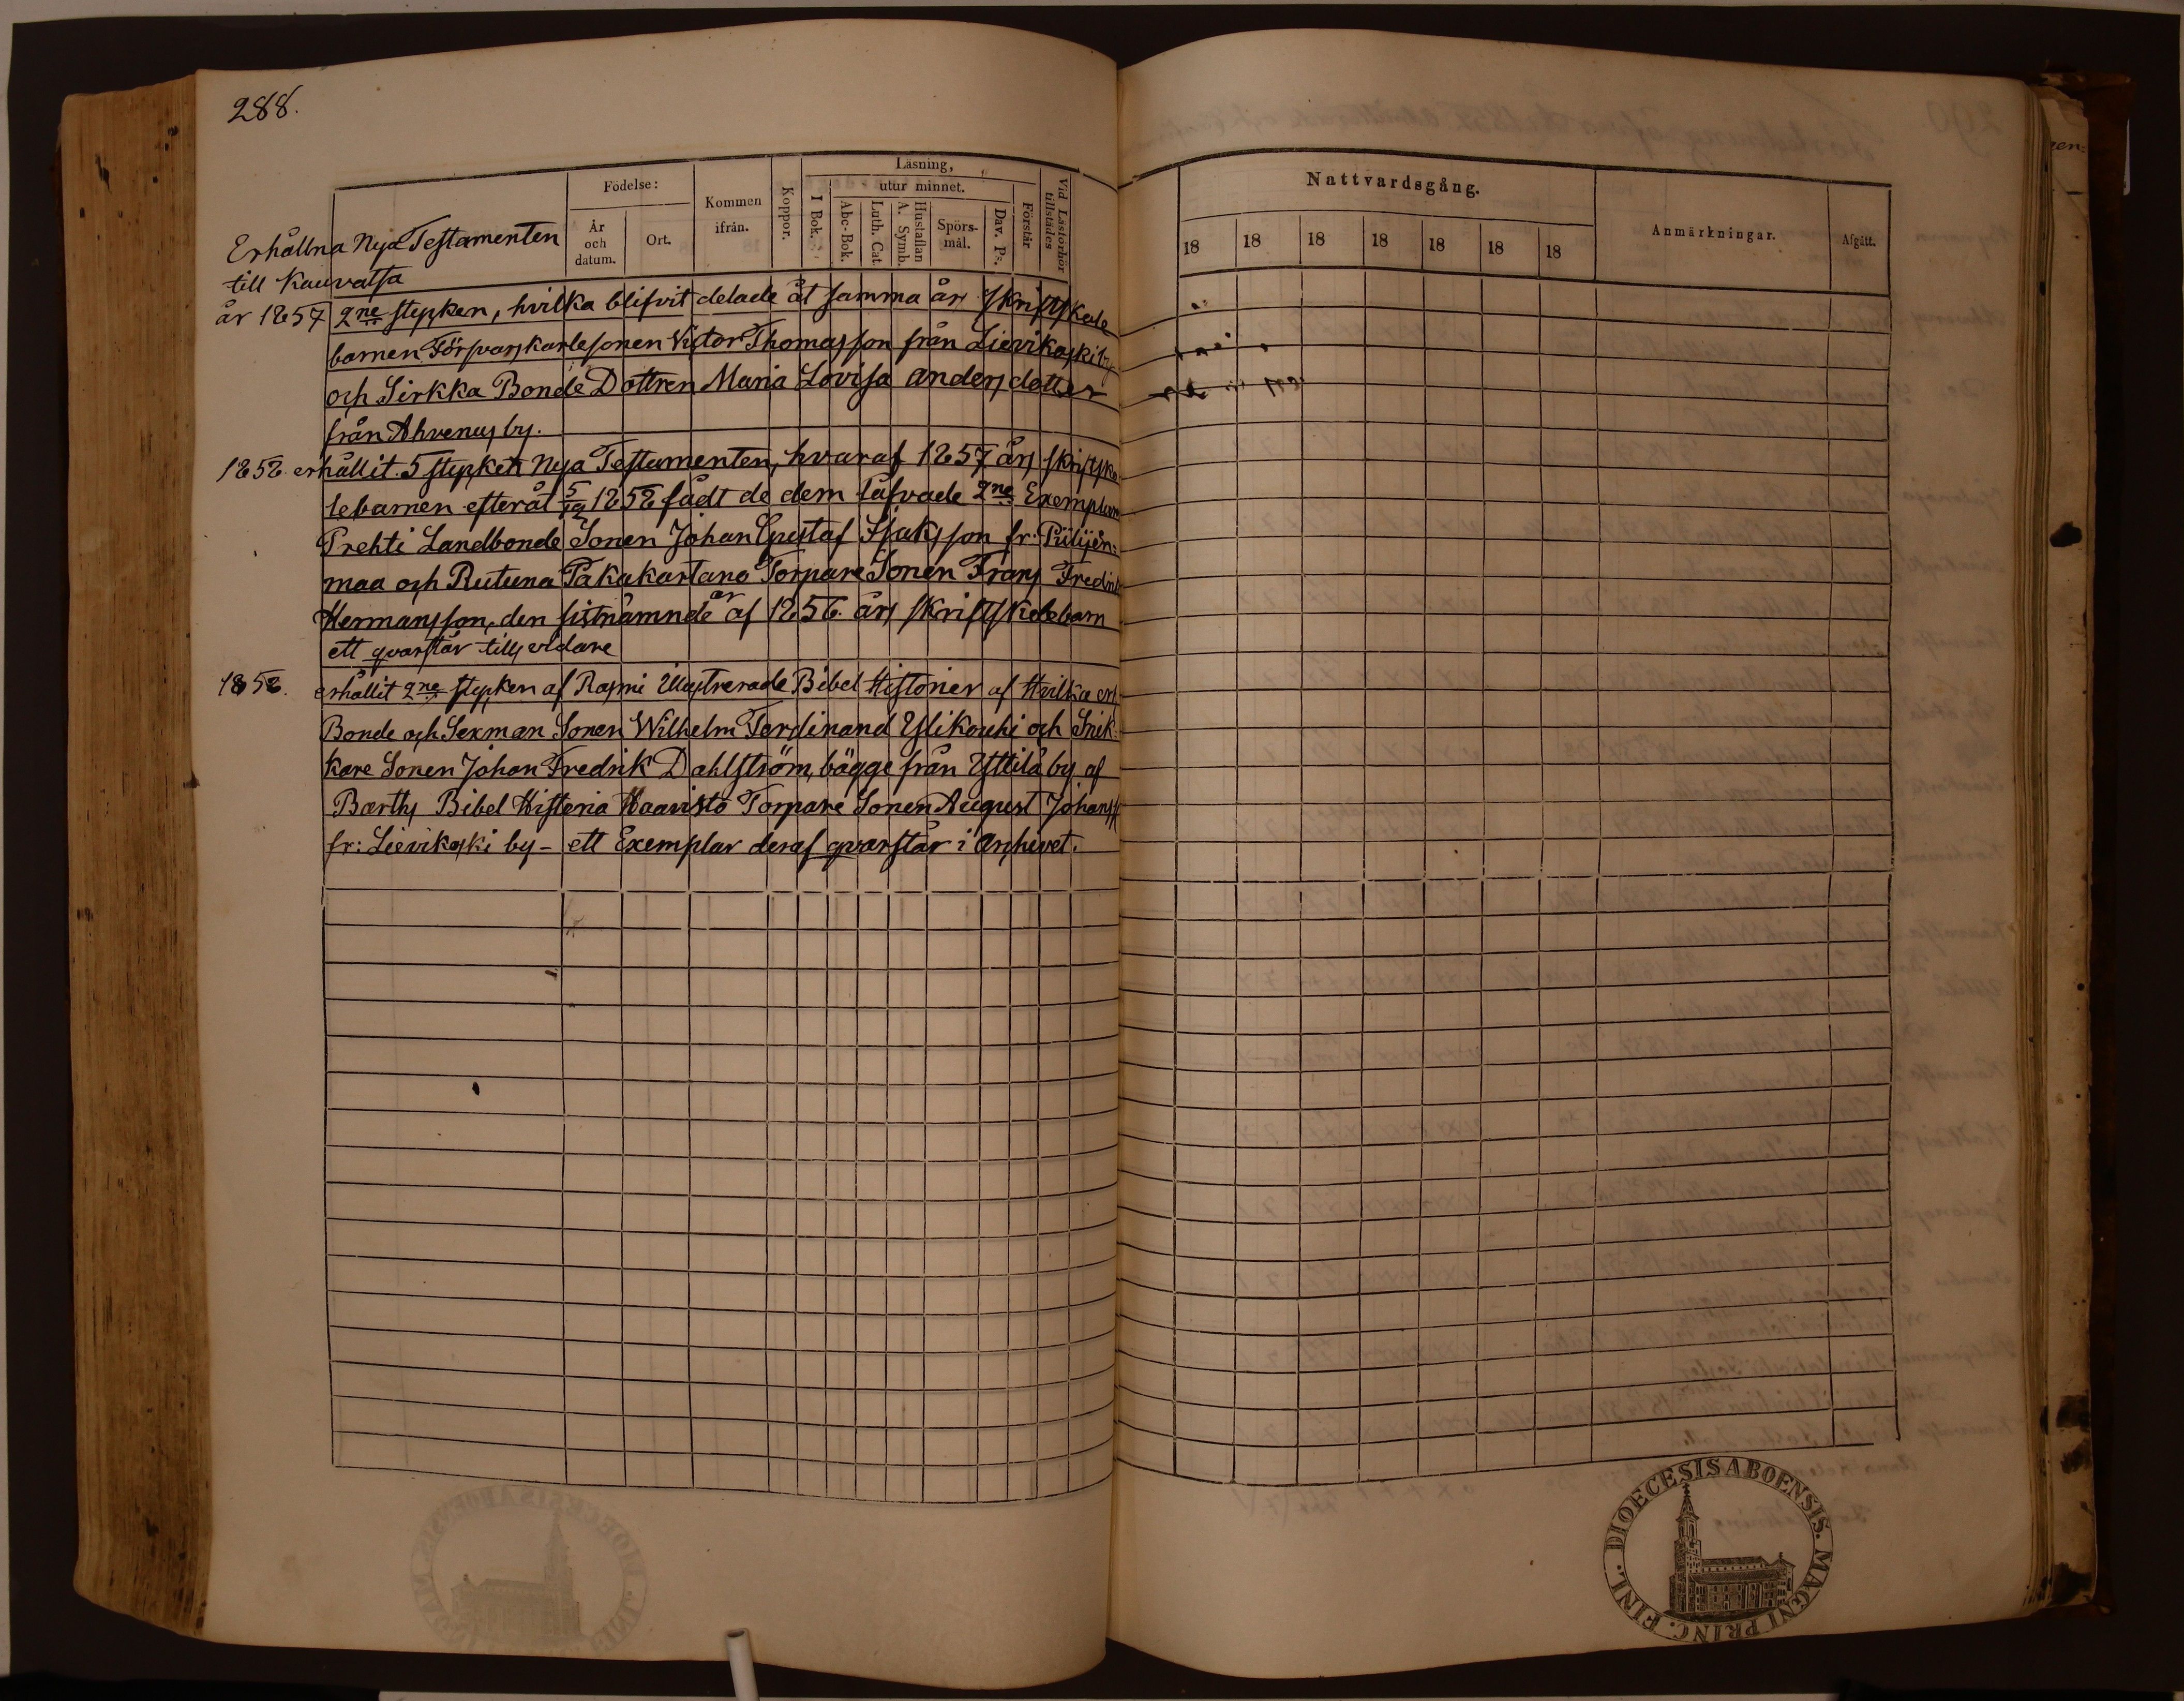 288.
Läsning,
Födelse:
utur minnet.
Kommen ifrån.
Koppor.
I Bok.
Abc-Bok.
Luth. Cat.
Hustaflan A. Symb.
Spörsmål.
Dav. Ps.
Förstår
Vid Läsförhör tillstädes
År och datum.
Ort.
Nattvardsgång.
Anmärkningar.
Afgått.
18 18 18 18 18 18 18
Erhållna Nya Testamenten
till Kauvatsa
år 1857 2ne stycken, hvilka blifvit delade åt samma års Skriftskole
barnen Försvarskarlesonen Victor Thomasson från Lievikoskiby
och Sirkka Bonde Dottren Maria Lovisa Andersdotter
från Ahvenus by.
1858. erhållit 5 stycken Nya Testamenten, hvaraf 1857 års skriftsko
lebarnen efteråt 5/12 1858 fådt de dem låfvade 2ne Exemplar
Prehti Landbonde Sonen Johan Gustaf Isaksson fr. Piilijen:
maa och Rutuna Takakartano Torpare Sonen Frans Fredrik
Hermansson, den sistnämnde är af 1856 års Skriftskolebarn
ett qvarstår tills vidare
1858. erhållit 2ne stycken af Illustrerade Bibel Historier af Hvilka
Bonde och Sexman Sonen Wilhelm Ferdinand Ylikouhi och Snik-
kare Sonen Johan Fredrik Dahlström, bägge från Yttilä by af
Barths Bibel Historia Haavisto Torpare Sonen August Johanss
fr: Lievikoski by - ett Exemplar deraf qvarstår i Archivet.
DIOECESIS ABOENSIS. MAGNI PRINC. FINL.